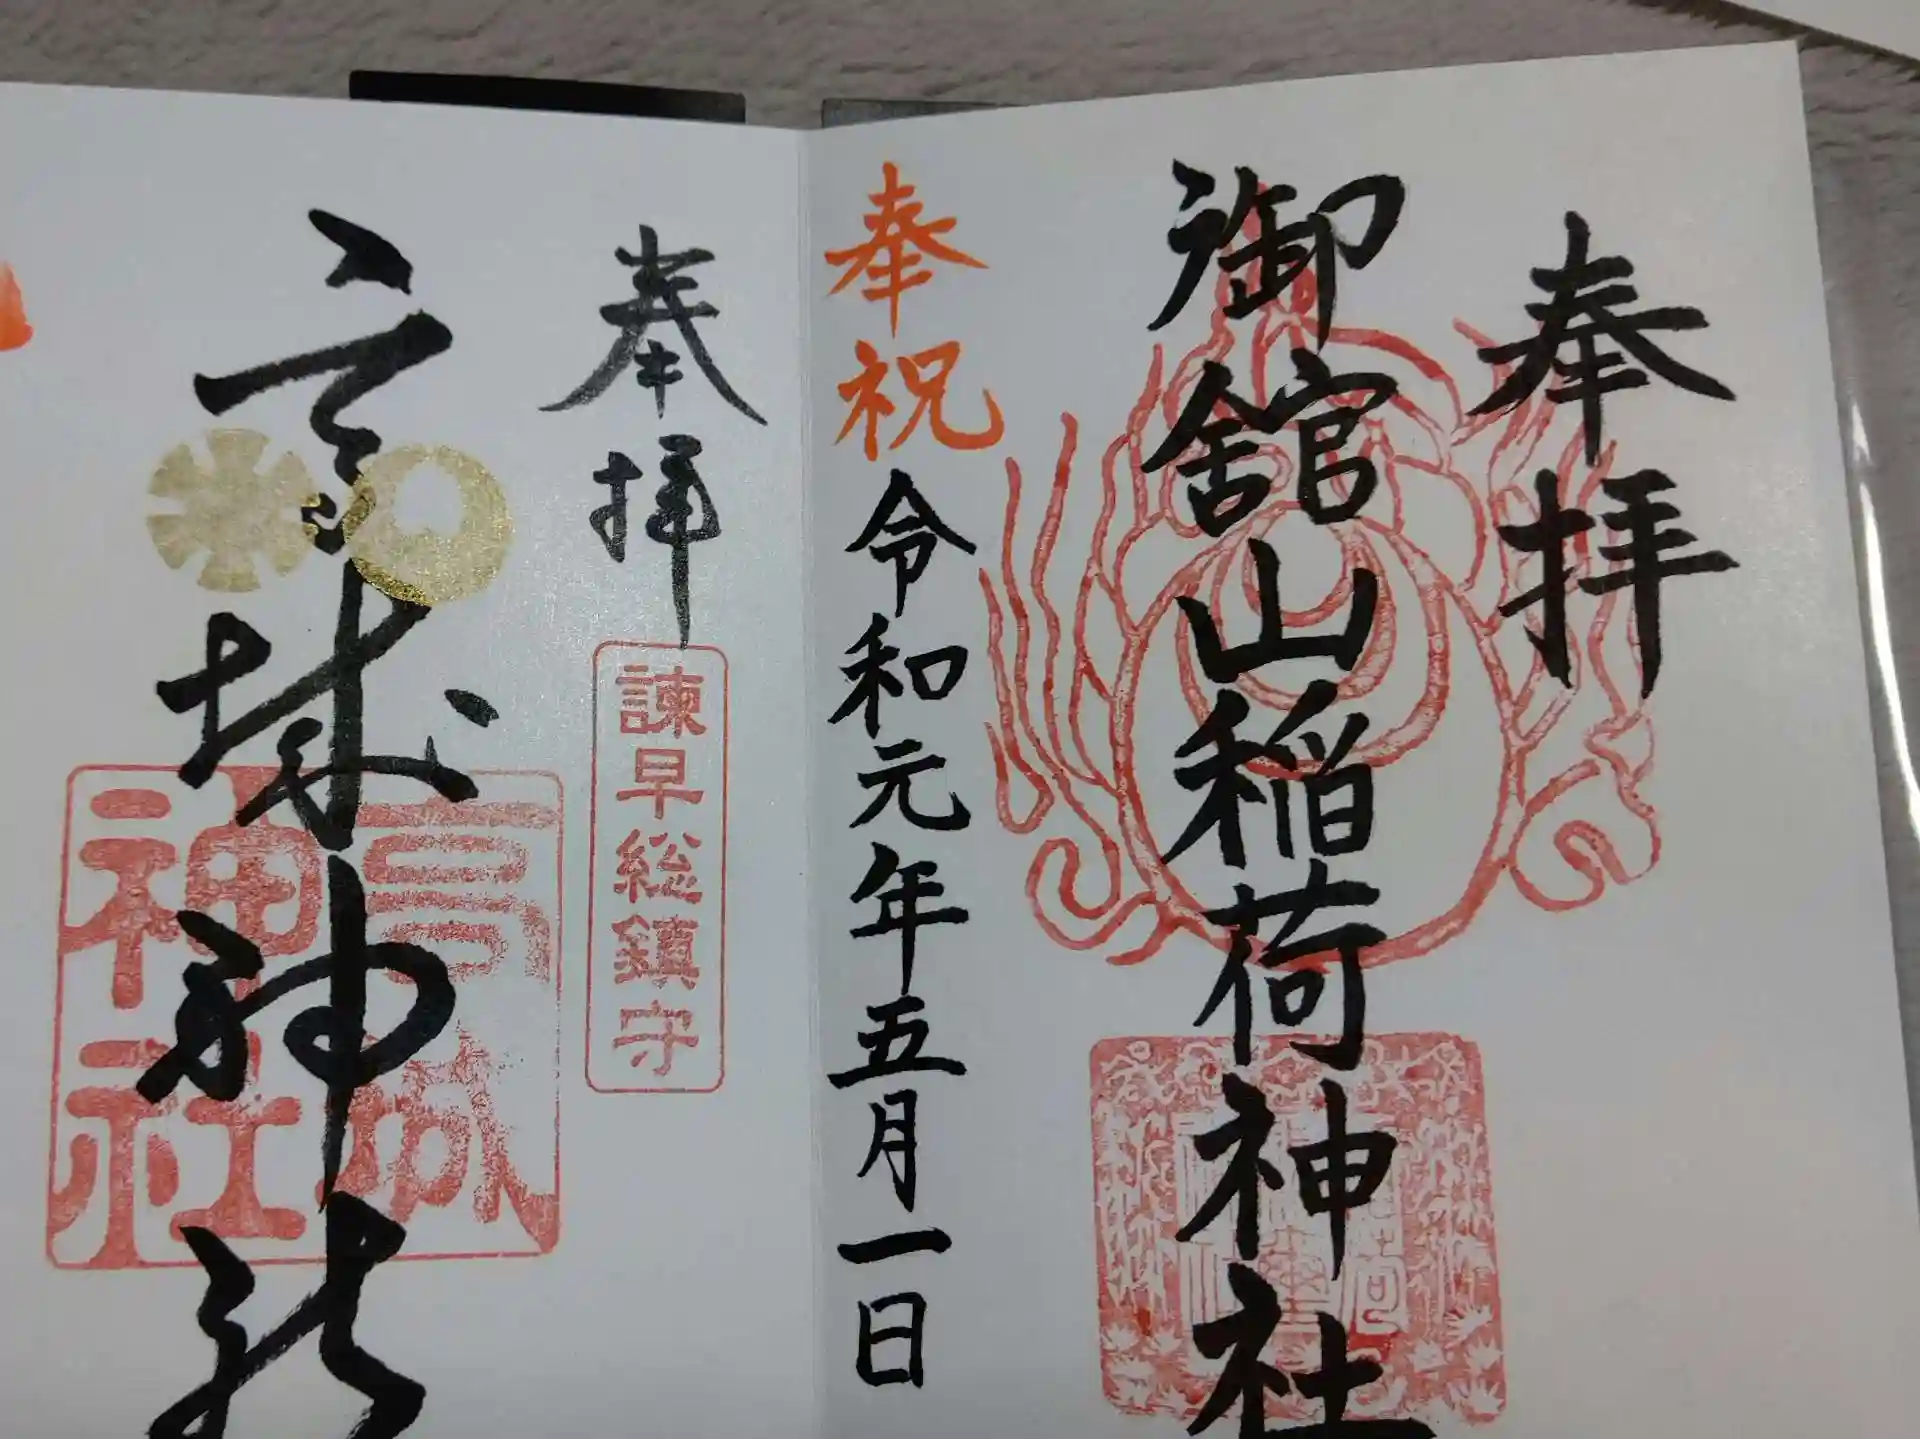 奉拝
御舘山稲荷神社
奉祝
令和元年五月一日
奉拝
諫早総鎮守
高城神社
高城
神社